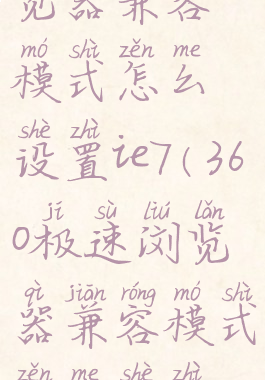 览器兼容
mó shì zěn me
模式怎么
shè zhì
设置ie7(36
jí sù liú lǎn
0极速浏览
qì jiān róng mó shì
器兼容模式
zěn me shè zhì